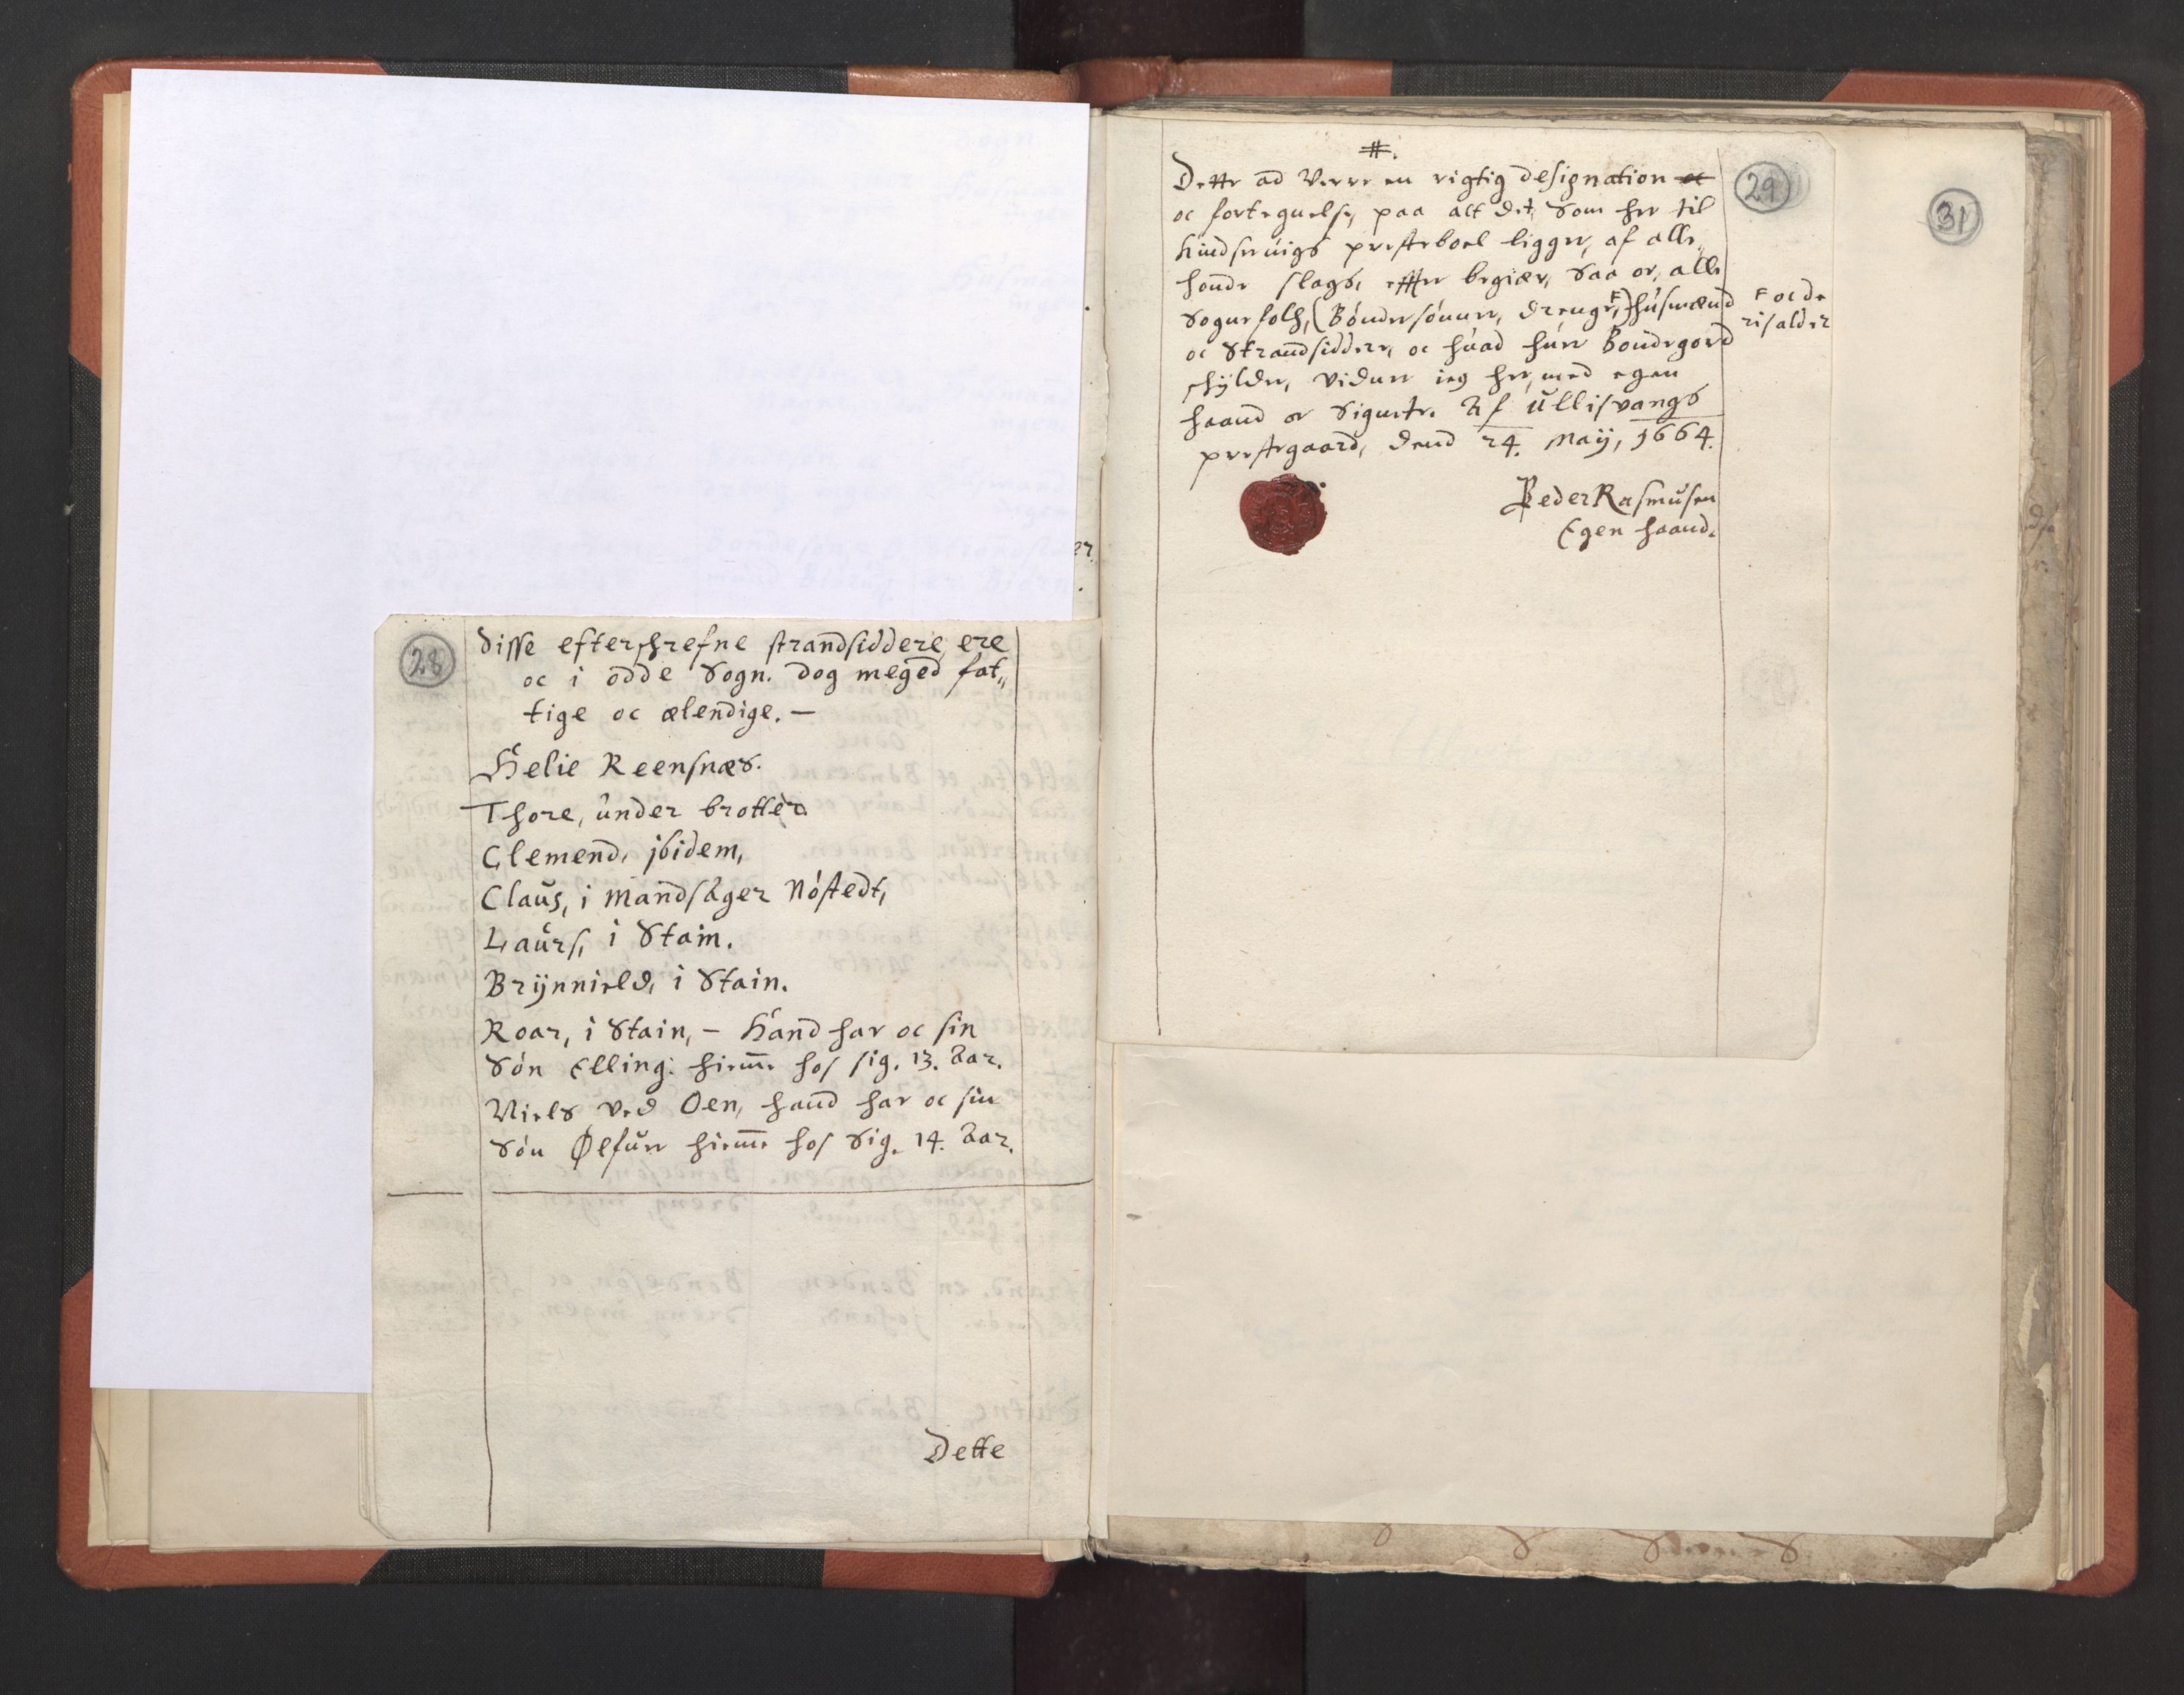 28
disse efterschrefne strandsiddere ere
oc i odde Sogn. dog meged fat„
tige oc ælendige. —
Helie Reensnæs.
Thore, ünder brotter.
Clemend, jbidem,
Claüs, i Mandsager Nóstedt,
Laürs, i Stain.
Brÿnnield, i Stain.
Roar, i Stain, — Hand har oc sin
Són Elling: hiem̅e hos sig. 13. Aar.
Niels ved Oen, hand har oc sin
Són Ølfuer hiem̅e hos sig. 14. Aar.
Dette
er.
#.
Dette ad Verre en rigtig designation oc
oc fortegnelse, paa alt det, som her til
Kindseruigs presteboel ligger, af alle
honde slags, effter begiær, saa oc, alle
Sognefolk, (Bóndersónner, drenge,F) húsmænd
F oc de
ris alder
oc Strandsiddere, oc húad húer Bondegord
skÿlder, vidner ieg her, med egen
haand oc Signete. Af Üllisvangs
prestegaard, dend 24. Maÿ, 1664.
Peder Rasmüsen
Egen haand.
29
31